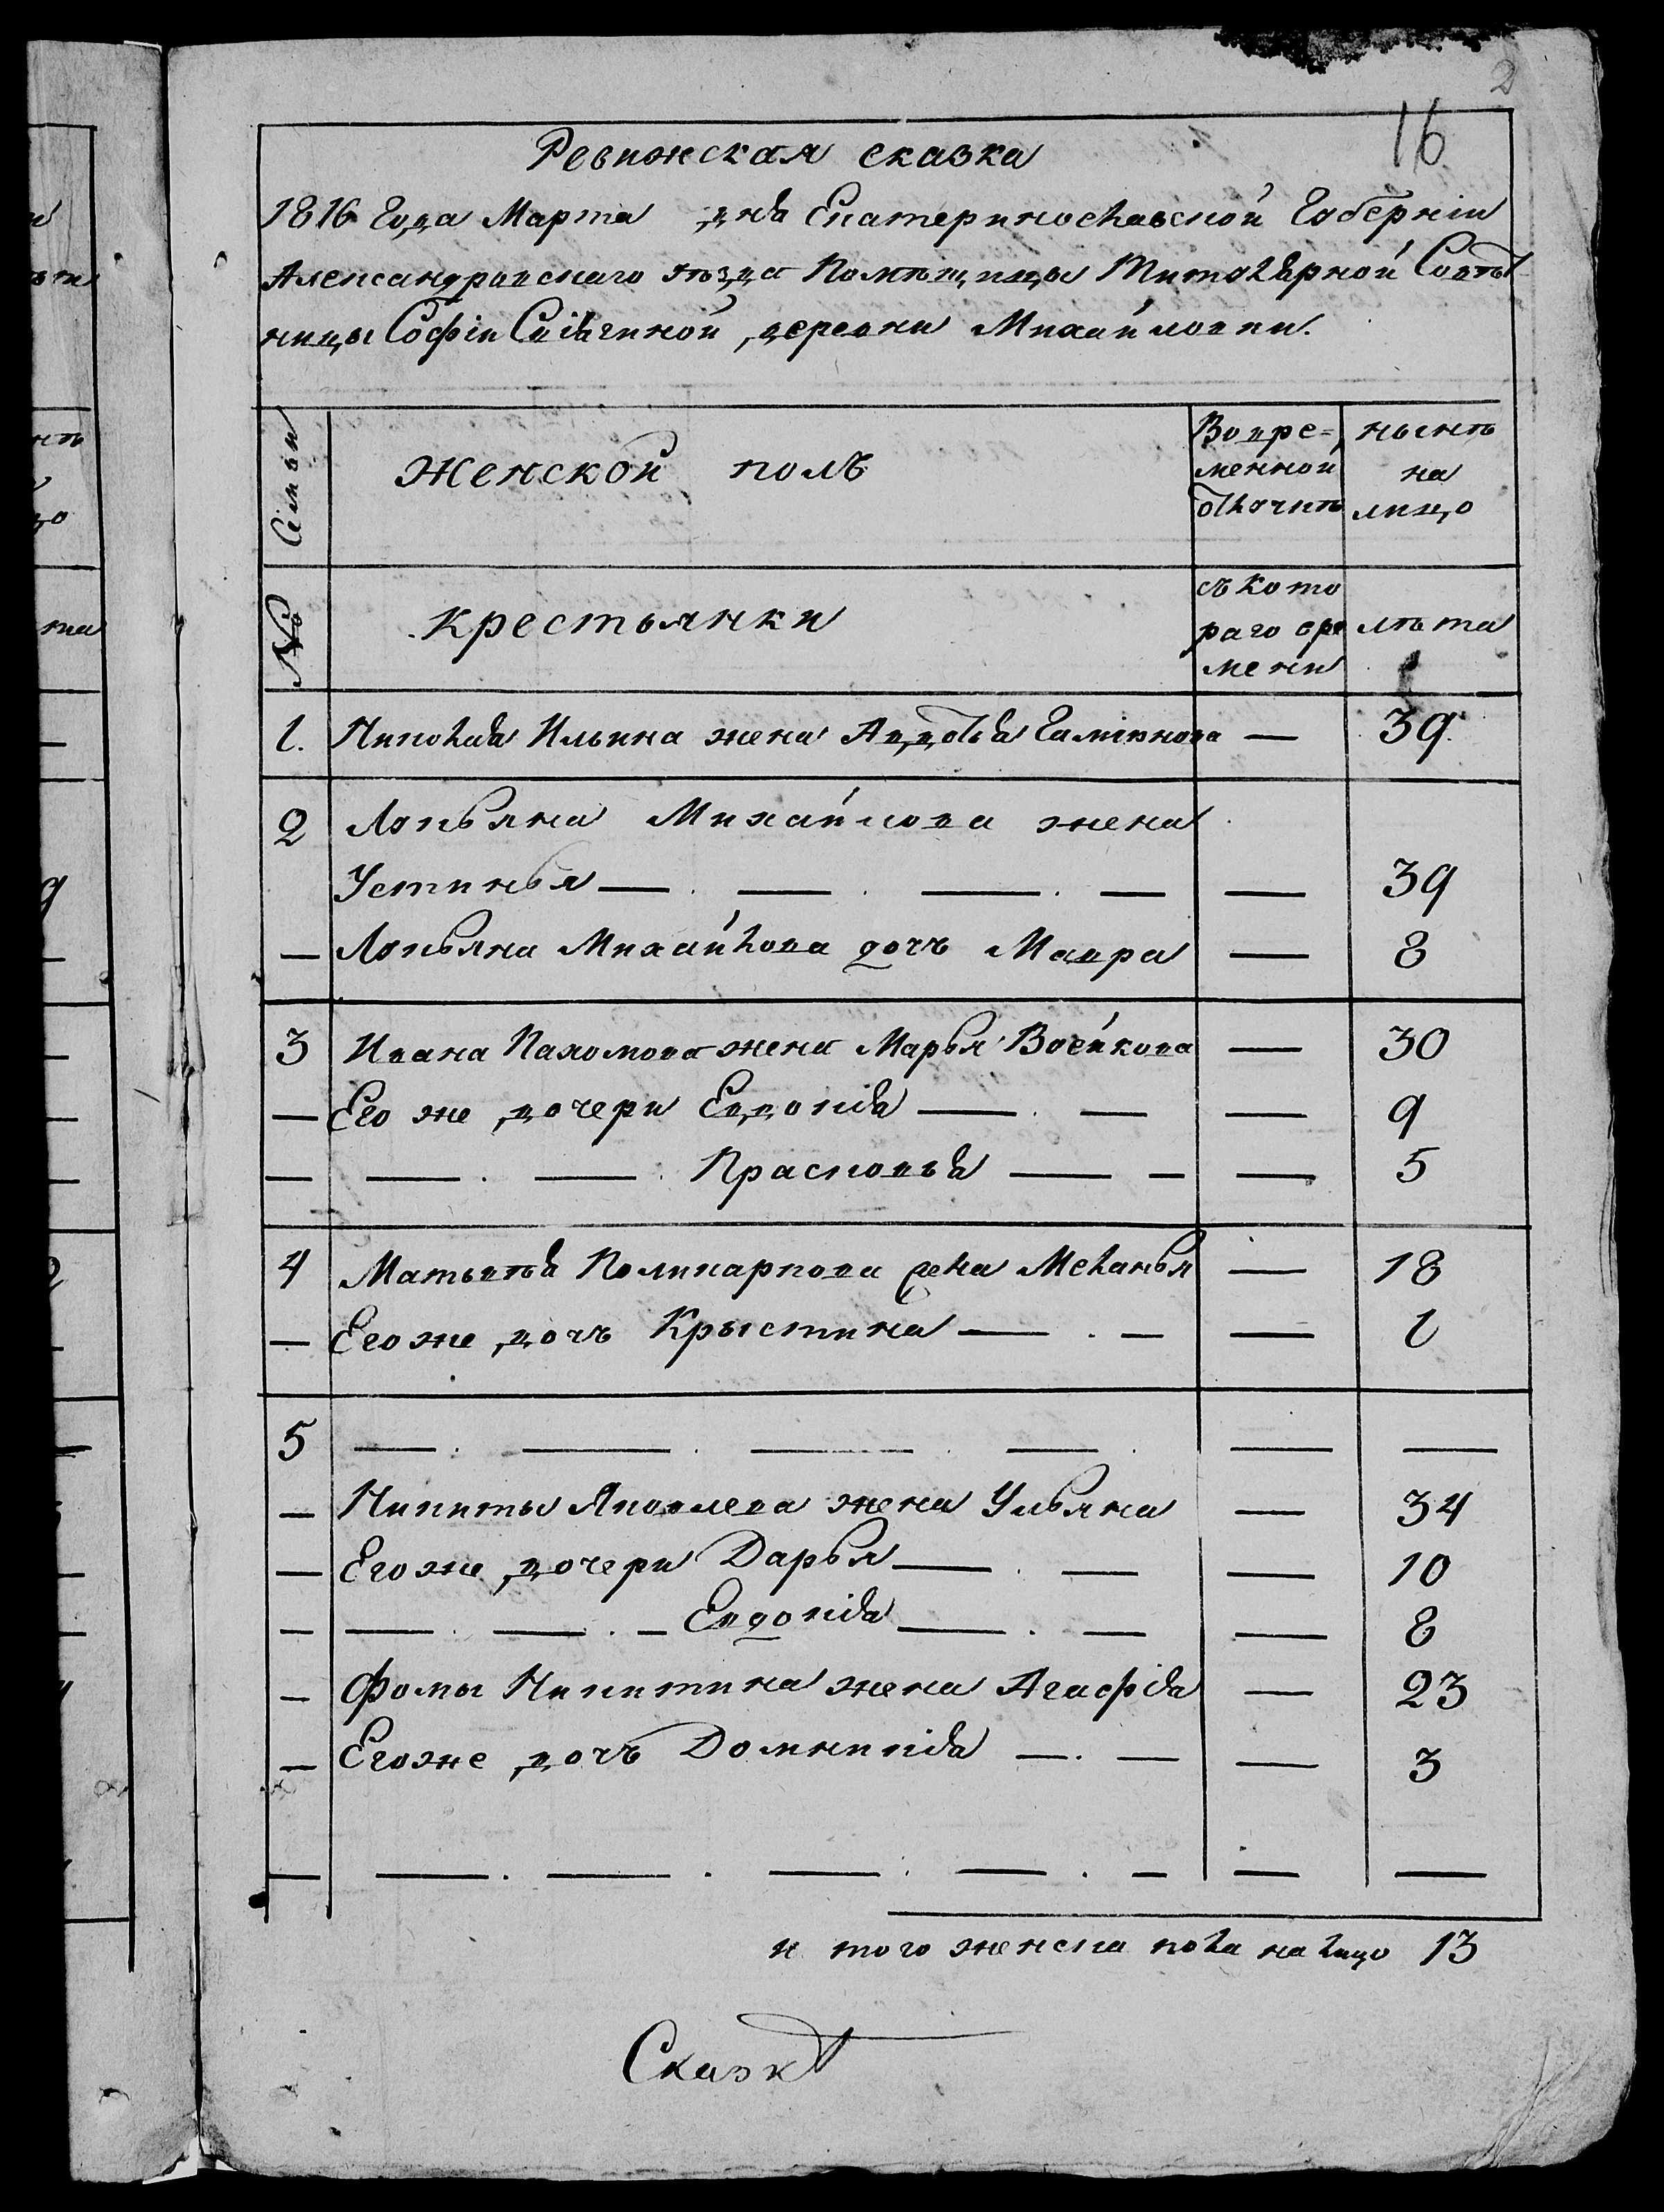 2
16
Ревижская сказка
1816 Года Марта дня Екатеринославской Губернiи
Александровскаго уѣзда Помѣщицы Титулярной Совѣт
ницы Софiи деревни Михайловки.
Семьи
Женской полъ
Вовре=
менной
отлучкѣ
нынѣ
на
лицо
№
Крестьянки
съ кото
раго вре
мени
лѣта
1. Николая Ильина жена Авдотья — 39
2 Лукьяна Михайлова жена
Устинья — . — . — . — — 39
— Лукьяна Михайлова дочь Мавра — 8
3 Ивана Пахомова жена Марья Войкова — 30
— Его же дочери Евдокiя — . — — 9
— — . — . Прасковья — — — 5
4 Матьвѣя Поликарпова жена Меланья — 18
— Его же дочь Крыстина — . — — 1
5 — . — . — . — . — —
— Никиты Яковлева жена Ульяна — 34
— Егоже дочери Дарья — . — — 10
— — . — . — Евдокiя — . — — 8
— Фомы Никитина жена Агафiя — 23
— Егоже дочь Домникiя — . — — 3
— — . — . — . — . — — —
и того женска пола налицо 13
Сказк